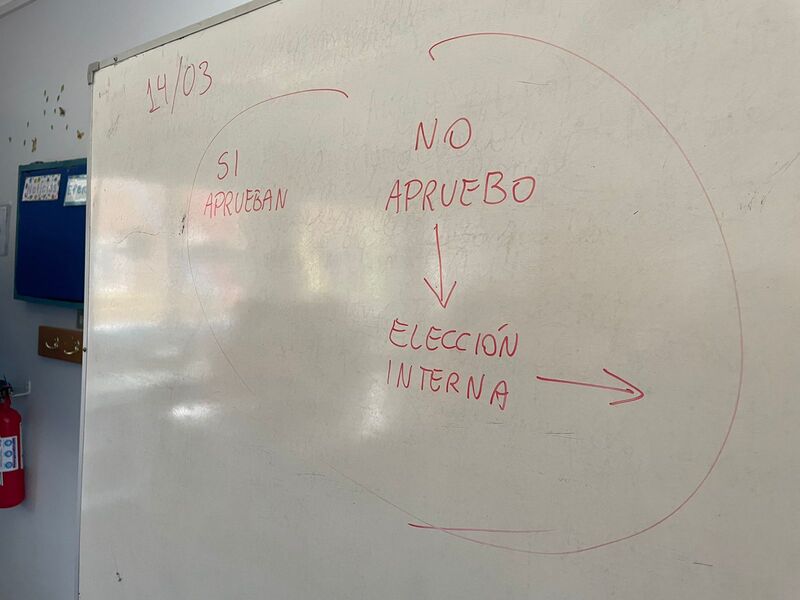 14/03
SI
APRUEBAN
NO
APRUEBO
ELECCIÓN
INTERNA